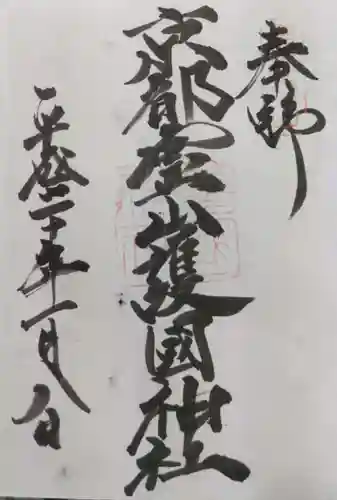 奉拝
京都霊山護國神社
平成二十年一月八日